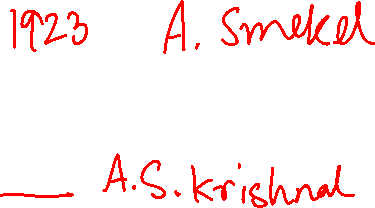 1923 A. Smekel
___ A.S. Krishnal